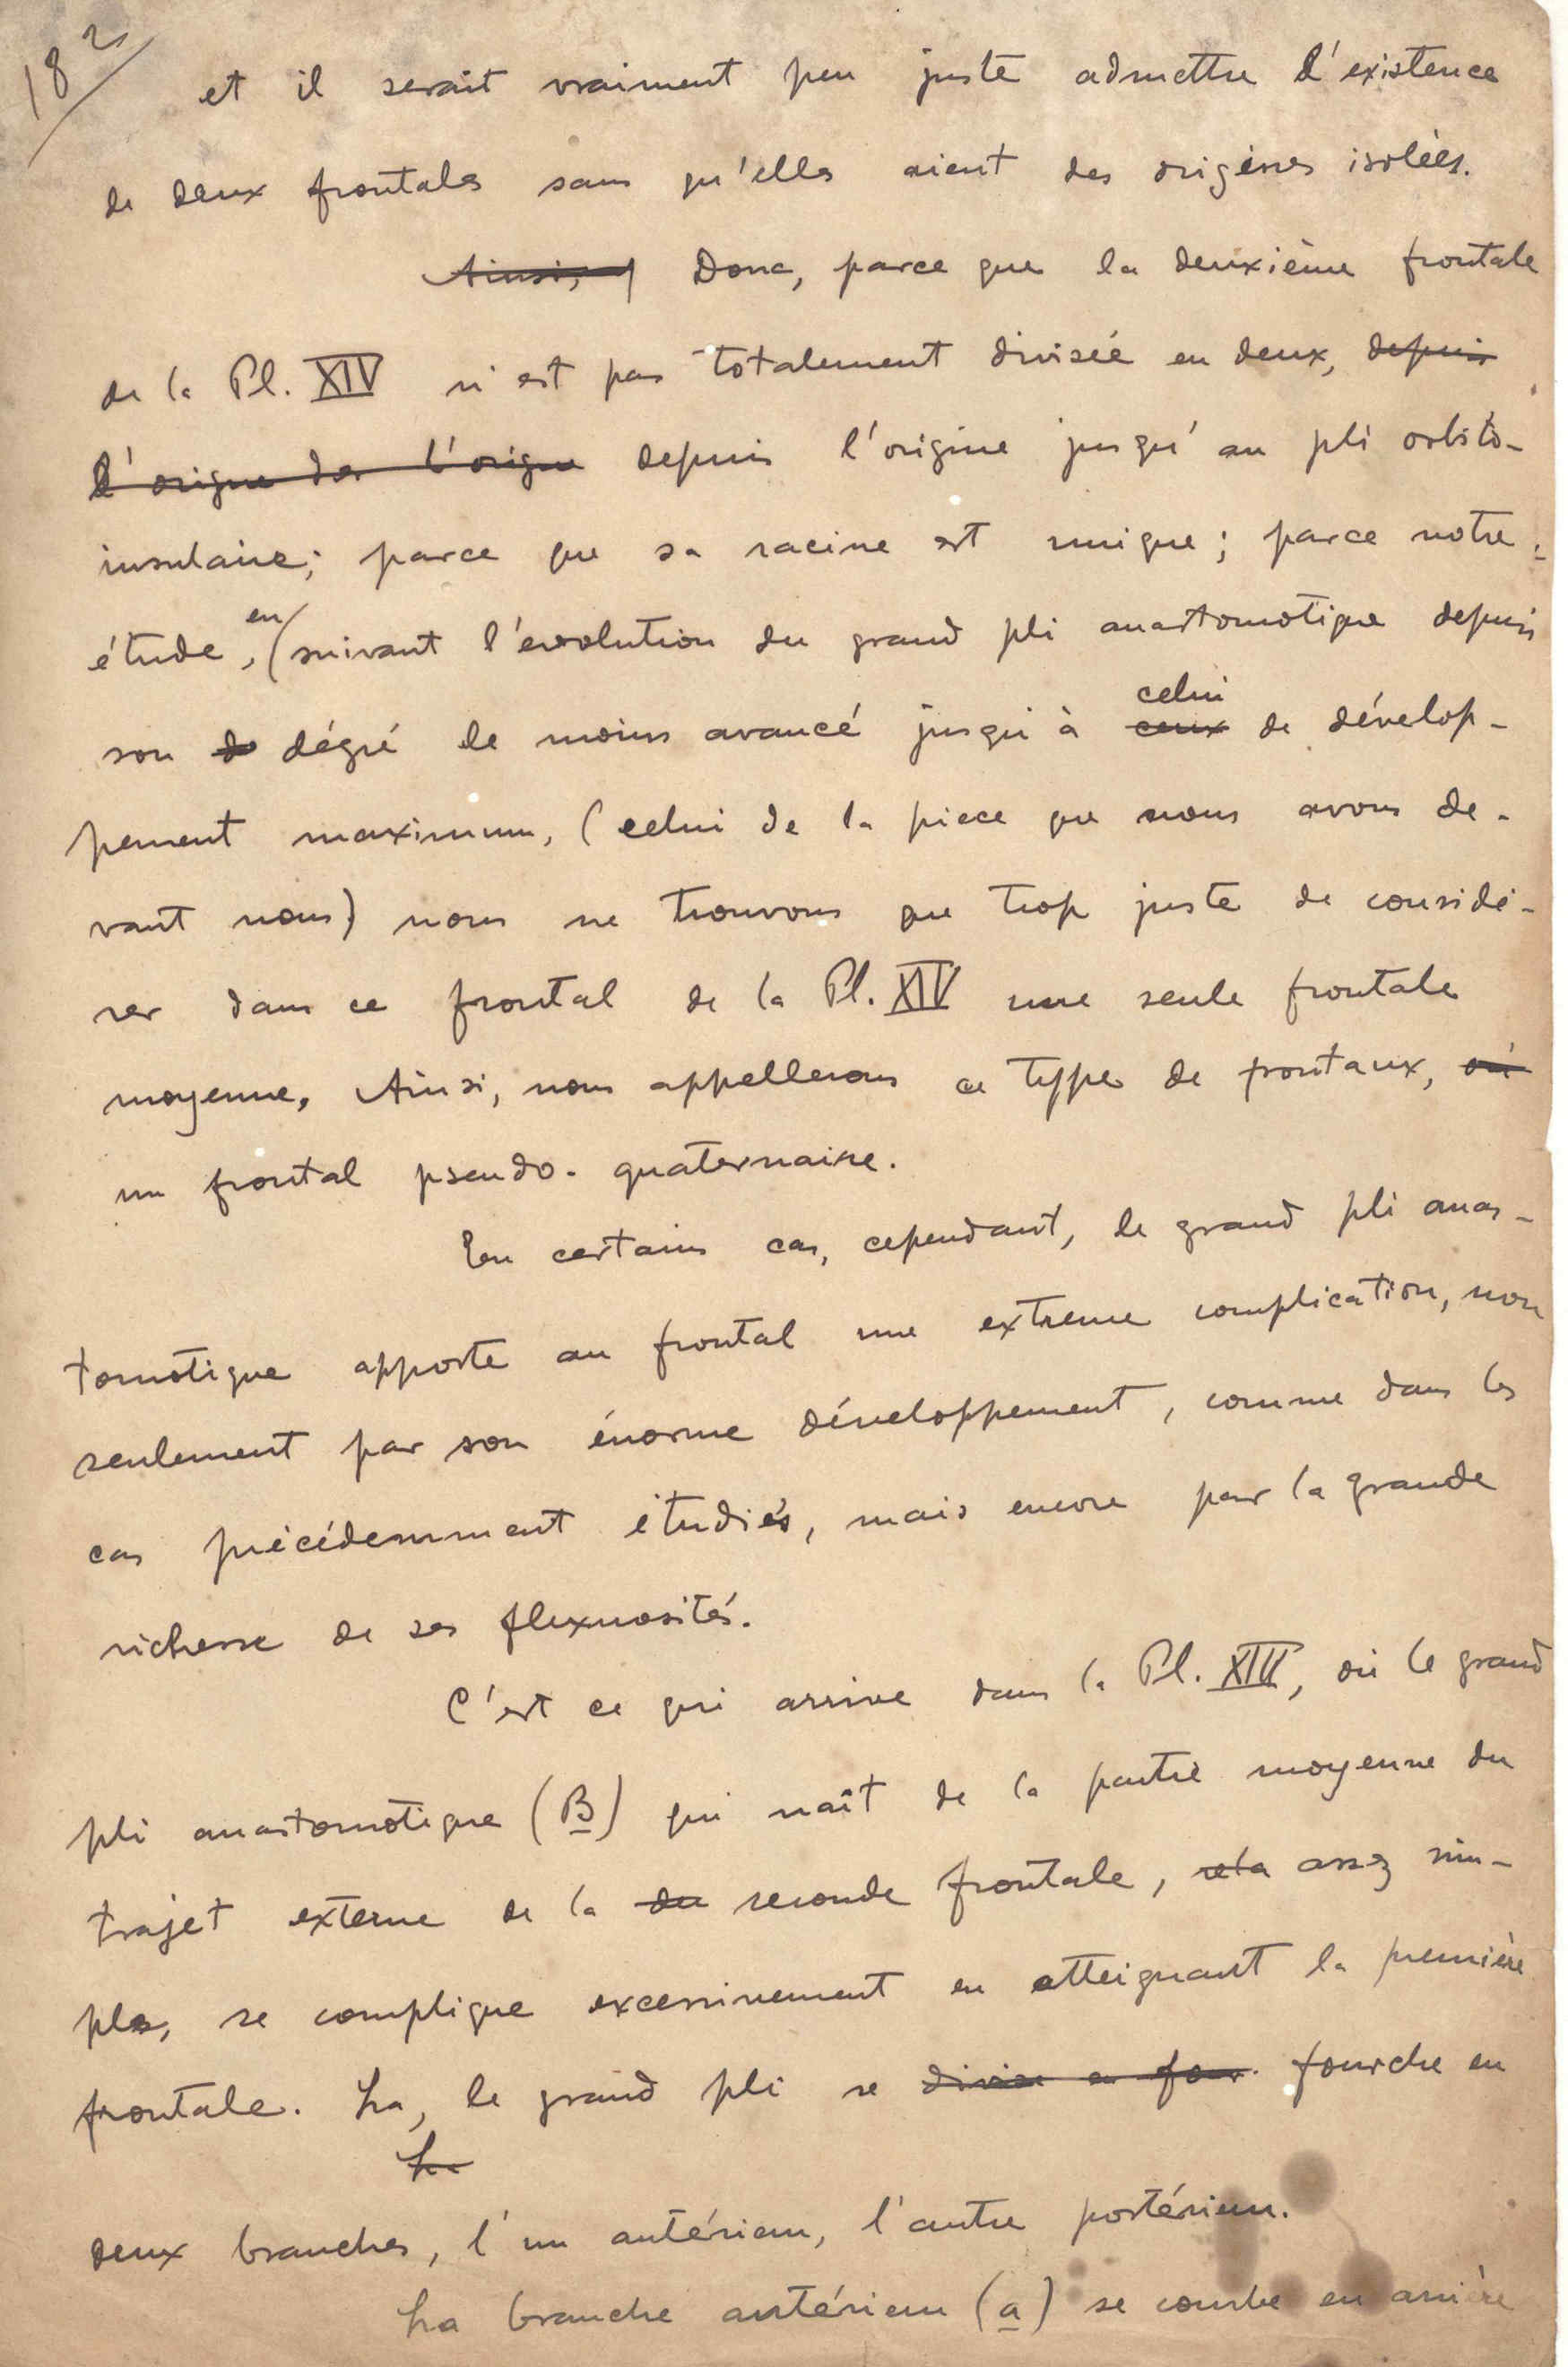 182
et il serait vraiment peu juste admettre l'existence
de deux frontales sans qu'elles aient des origines isolées.
Ainsi, Donc, parce que la deuxième frontale
de la Pl. XIV n'est pas totalement divisée en deux, depuis
l'origine des l'origne depuis l'origine jusqu'au pli orbito-
insulaire; parce que sa racine est unique; parce notre
étude, en (suivant l'evolution du grand pli anastomotique depuis
son d dégré le moins avancé jusqu'à ceux celui de dévelop-
pement maximum, (celui de la piece que nous avons de-
vant nous) nous ne trouvons que trop juste de considé-
rer dans ce frontal de la Pl. XIV une seule frontale
moyenne. Ainsi, nous appellerons ce type de frontaux, où
un frontal pseudo-quaternaire.
En certains cas, cependant, le grand pli anas-
tomotique apporte au frontal une extreme complication, non
seulement par son énorme développement, comme dans les
cas précédemment étudiés, mais encore par la grande
richesse de ses flexuosités.
C'est ce qui arrive dans la Pl. XIII, où le grand
pli anastomotique (B) qui naît de la partie moyenne du
trajet externe de la du seconde frontale, assez sim-
ple, se complique excessivement en atteignant la première
frontale. La, le grand pli se divise en four. fourche en
La
deux branches, l'un antérieur, l'autre postérieur.
La branche antérieur (a) se courbe en arrière